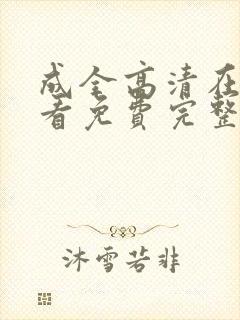 成全高清在
看免费完整
沐雪若非